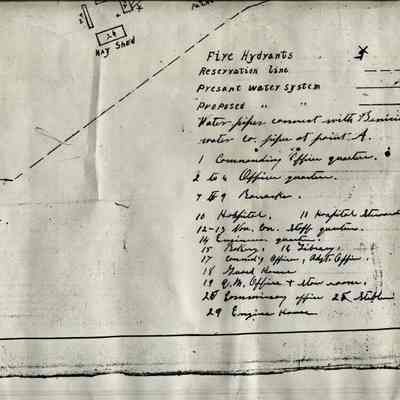 24
Hay Shed
Fire Hydrants
Reservation line
Presant water system
Proposed " "
Water pipes connect with Benicia
water co. pipe at point A.
1 Commanding Officer quarter.
2 to 6 Officer quarter.
7 to 9 Barracks.
10 Hospital. 11 Hospital Steward
12-13 Non. Com. Staff quarters.
14 Engineer quarter.
15 Bakery. 16 Library.
17 Comd'g Officer, Adjt. Office.
18 Guard House
19 Q.M. Office + store room.
Commissary office Stables
29 Engine House